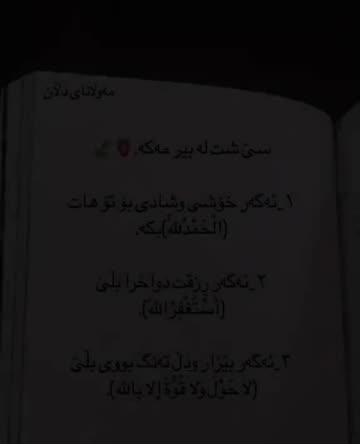 مەولانای دڵان
سێ شت لە بیر مەکە.
١_ئەگەر خۆشی وشادی بۆ تۆ هات
(الْحَمْدُللهِ)بکە.
٢_ئەگەر ڕزقت دواخرا بڵێ
(أَسْتَغْفِرُالله).
٣_ئەگەر بێزار ودڵ تەنگ بووی بڵێ
(لا حَوْلَ وَلا قُوَّةَ إلا بالله).